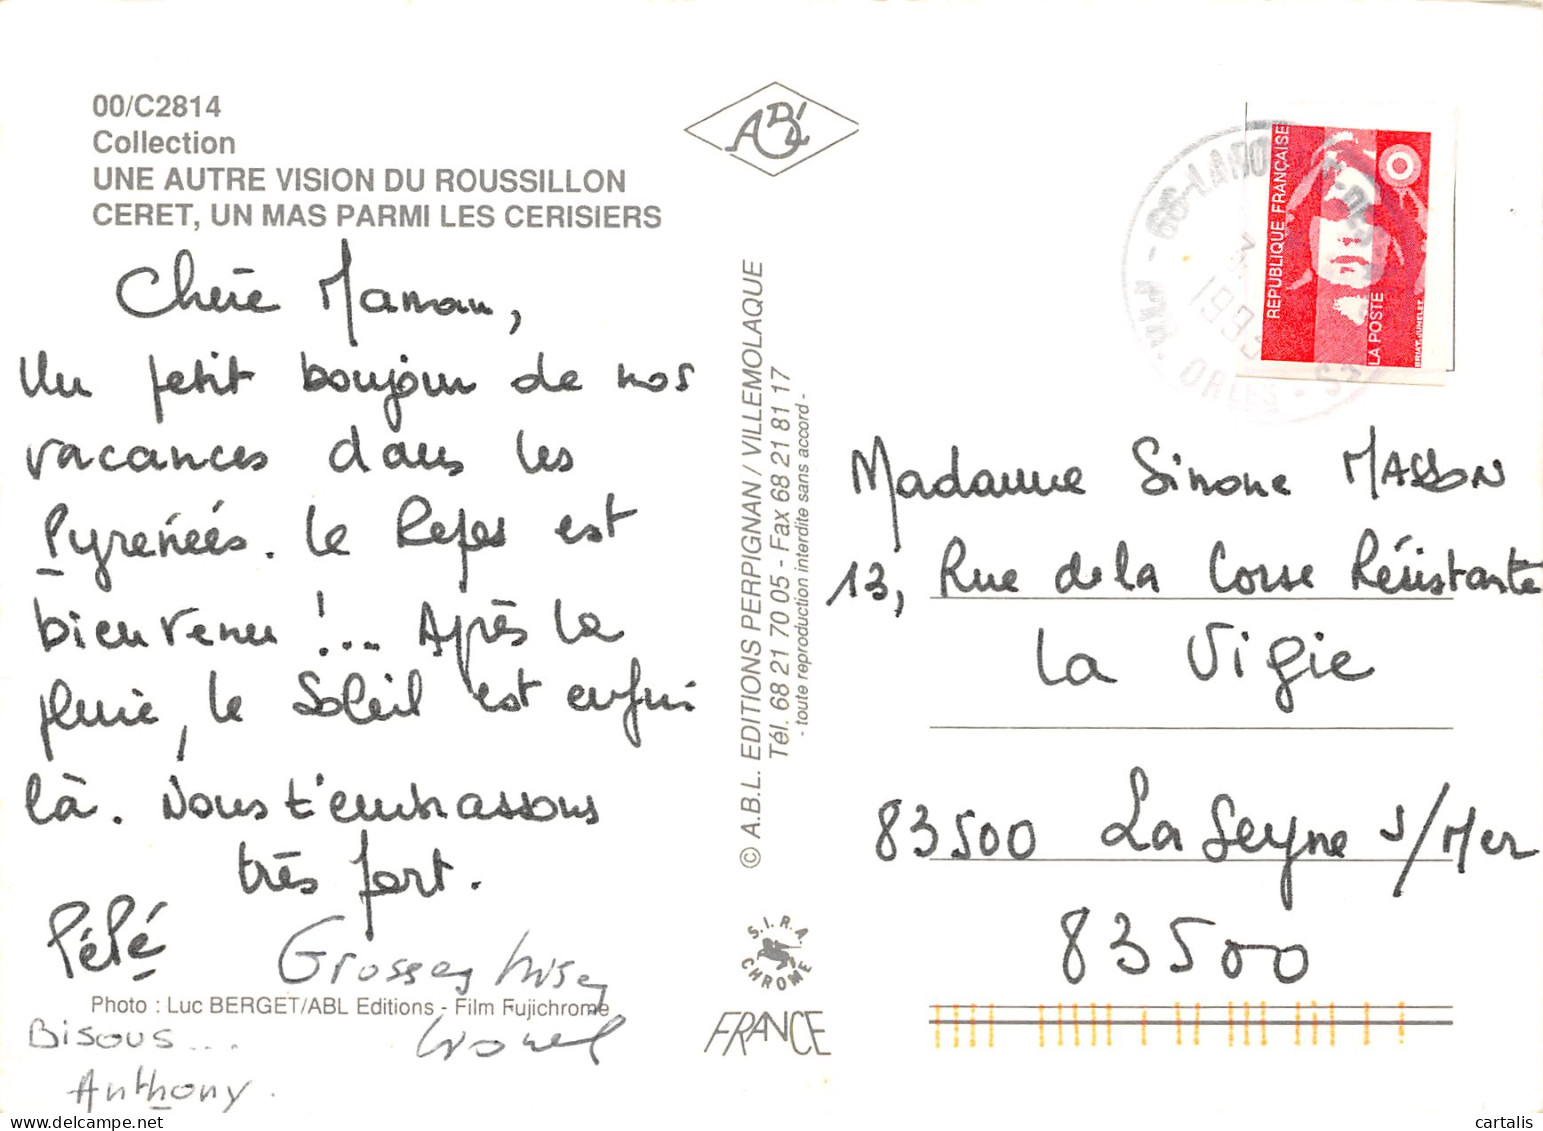 00/C2814
Collection
UNE AUTRE VISION DU ROUSSILLON
CERET, UN MAS PARMI LES CERISIERS
Chère Maman,
Un petit bonjour de nos
vacances dans les
Pyrénéés. Le Repos est
bienvenu !... Après la
pluie, le Soleil est enfin
là. Nous t'embrassons
très fort.
Pépé
Grosses bises
Lionel
Bisous...
Anthony.
Photo : Luc BERGET/ABL Editions - Film Fujichrome
ABL
© A.B.L. EDITIONS PERPIGNAN / VILLEMOLAQUE
Tél. 68 21 70 05 - Fax 68 21 81 17
- toute reproduction interdite sans accord -
S.I.R.A
CHROME
FRANCE
REPUBLIQUE FRANÇAISE
LA POSTE
BRIAT-JUMELET
Madame Simone MASSON
13, Rue de la Corse Résistante
La Vigie
83500 La Seyne S/Mer
83500
cartalis